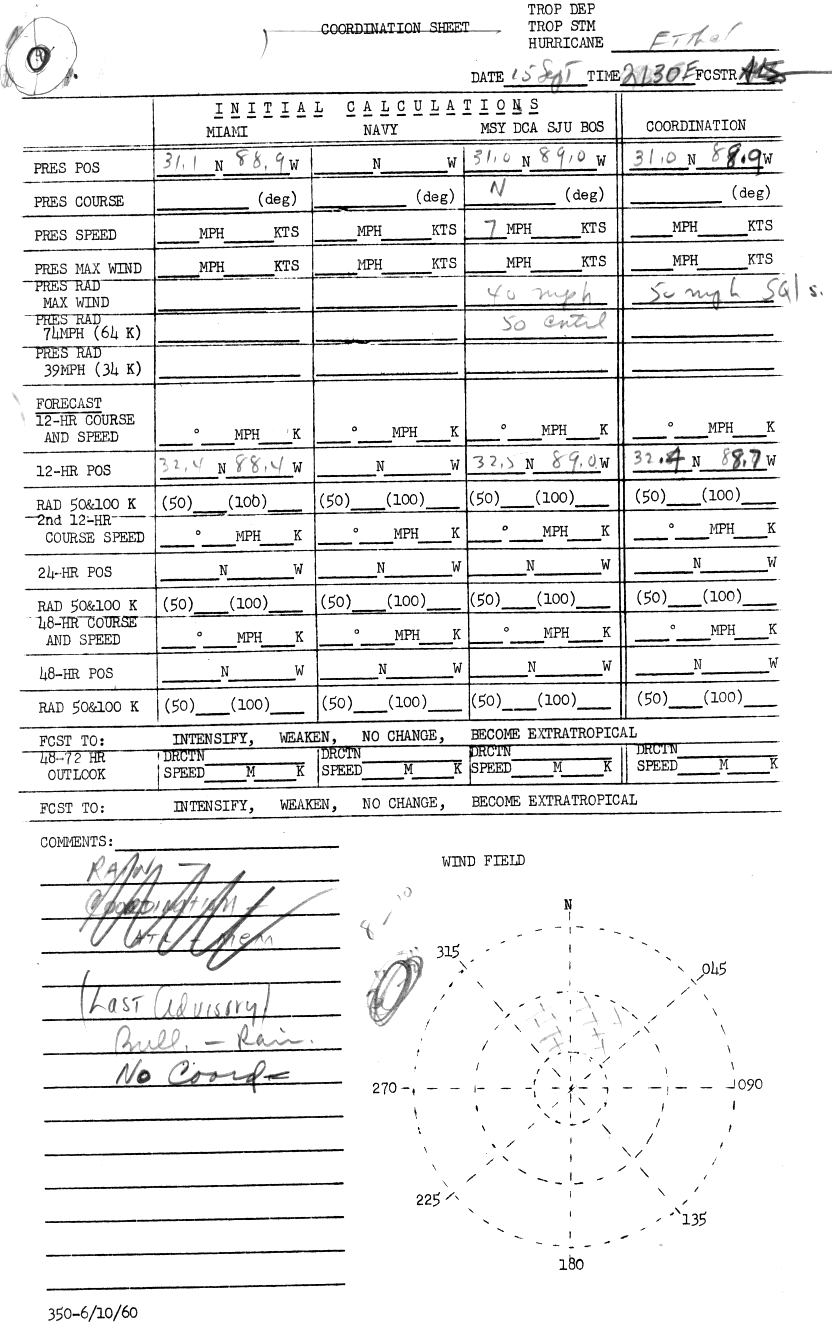 TROP DEP
COORDINATION SHEET TROP STM
HURRICANE Ethel
DATE 15 Sept TIME 2130E FCSTR
INITIAL CALCULATIONS
MIAMI NAVY MSY DCA SJU BOS COORDINATION
PRES POS 31.1 N 88.9 W N W 31.0 N 89.0 W 31.0 N 88.9 W
PRES COURSE (deg) (deg) N (deg) (deg)
PRES SPEED MPH KTS MPH KTS 7 MPH KTS MPH KTS
PRES MAX WIND MPH KTS MPH KTS MPH KTS MPH KTS
PRES RAD
MAX WIND 40 mph 50 mph Sqls.
PRES RAD 50 cntrl
74MPH (64 K)
PRES RAD
39MPH (34 K)
FORECAST
12-HR COURSE
AND SPEED ° MPH K ° MPH K ° MPH K ° MPH K
12-HR POS 32.4 N 88.4 W N W 32.5 N 89.0 W 32.4 N 88.7 W
RAD 50&100 K (50) (100) (50) (100) (50) (100) (50) (100)
2nd 12-HR
COURSE SPEED ° MPH K ° MPH K ° MPH K ° MPH K
24-HR POS N W N W N W N W
RAD 50&100 K (50) (100) (50) (100) (50) (100) (50) (100)
48-HR COURSE
AND SPEED ° MPH K ° MPH K ° MPH K ° MPH K
48-HR POS N W N W N W N W
RAD 50&100 K (50) (100) (50) (100) (50) (100) (50) (100)
FCST TO: INTENSIFY, WEAKEN, NO CHANGE, BECOME EXTRATROPICAL
48-72 HR DRCTN DRCTN DRCTN DRCTN
OUTLOOK SPEED M K SPEED M K SPEED M K SPEED M K
FCST TO: INTENSIFY, WEAKEN, NO CHANGE, BECOME EXTRATROPICAL
COMMENTS:
RAIN -
Coordination -
(Last Advisory)
Bull. - Rain.
No Coord -
WIND FIELD
8 - 10
N
315 045
270 090
225 135
180
350-6/10/60